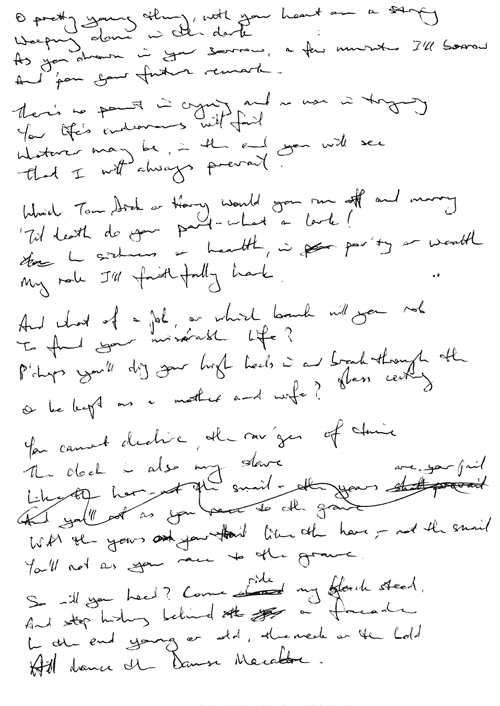 O pretty young thing, with your heart on a string
Weeping alone in the dark
As you drown in your sorrow, a few minutes I'll borrow
And pen your future remark.
There's no point in crying and no use in trying
Your life's endeavours will fail
Whatever may be, in the end you will see
That I will always prevail.
Which Tom, Dick or Harry would you run off and marry
'Til death do you part - what a lark!
In sickness or health, in pov'ty or wealth
My role I'll faithfully hark.
And what of a job, or which bank will you rob
To fund your miserable life?
P'rhaps you'll dig your high heels in and break through the
glass ceiling
Or be kept as a mother and wife?
You cannot decline, the rav'ges of time
The clock is also my slave
Like the hare - not the snail - the years are your jail
And you'll rot as you race to the grave
With the years your jail like the hare, - not the snail
You'll rot as you race to the grave.
So will you heed? Come ride my black steed.
And stop hiding behind a facade
In the end young or old, the meek or the bold
All dance the Danse Macabre.